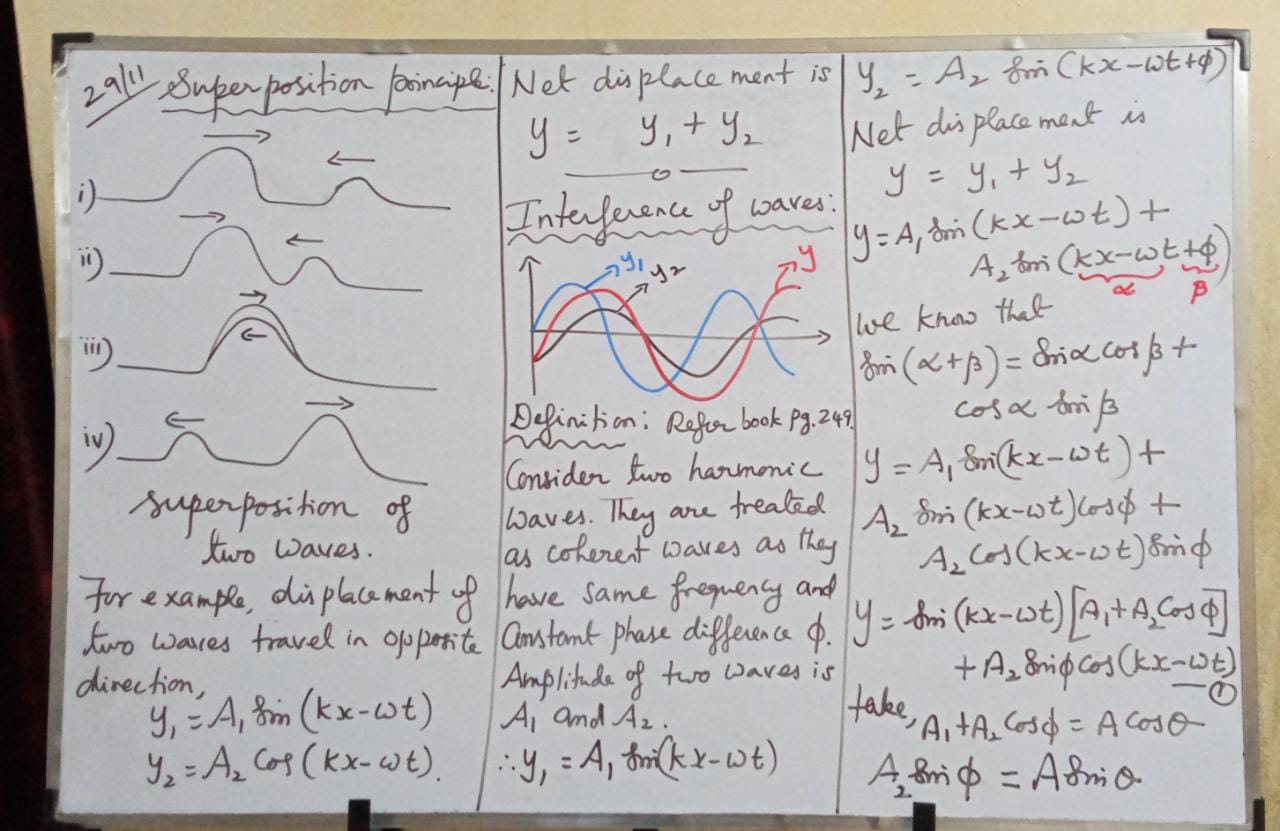 29/11 Superposition principle:
i)
ii)
iii)
iv)
superposition of
two waves.
For example, displacement of
two waves travel in opposite
direction,
y₁ = A₁ Sin (kx-ωt)
y₂ = A₂ Cos (kx-ωt).
Net displacement is
y = y₁ + y₂
Interference of waves:
y₁
y₂
y
Definition: Refer book pg.249.
Consider two harmonic
waves. They are treated
as coherent waves as they
have same frequency and
Constant phase difference ϕ.
Amplitude of two waves is
A₁ and A₂.
∴ y₁ = A₁ Sin(kx-ωt)
y₂ = A₂ Sin (kx-ωt+ϕ)
Net displacement is
y = y₁ + y₂
y = A₁ Sin (kx-ωt) +
A₂ Sin (kx-ωt+ϕ)
α β
We know that
Sin (α+β) = Sinα cos β +
cos α Sin β
y = A₁ Sin(kx-ωt) +
A₂ Sin (kx-ωt)Cosϕ +
A₂ Cos(kx-ωt)Sinϕ
y = Sin (kx-ωt)[A₁+A₂Cosϕ]
+ A₂ Sinϕ cos(kx-ωt)
—①
take, A₁+A₂ Cosϕ = A Cosθ
A₂ Sin ϕ = A Sin θ